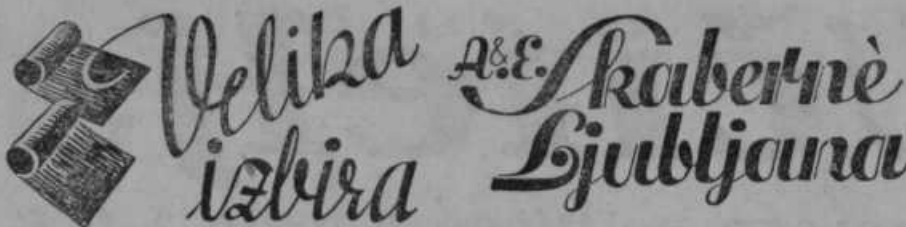 Velika
izbira
A.&E. Skabernè
Ljubljana